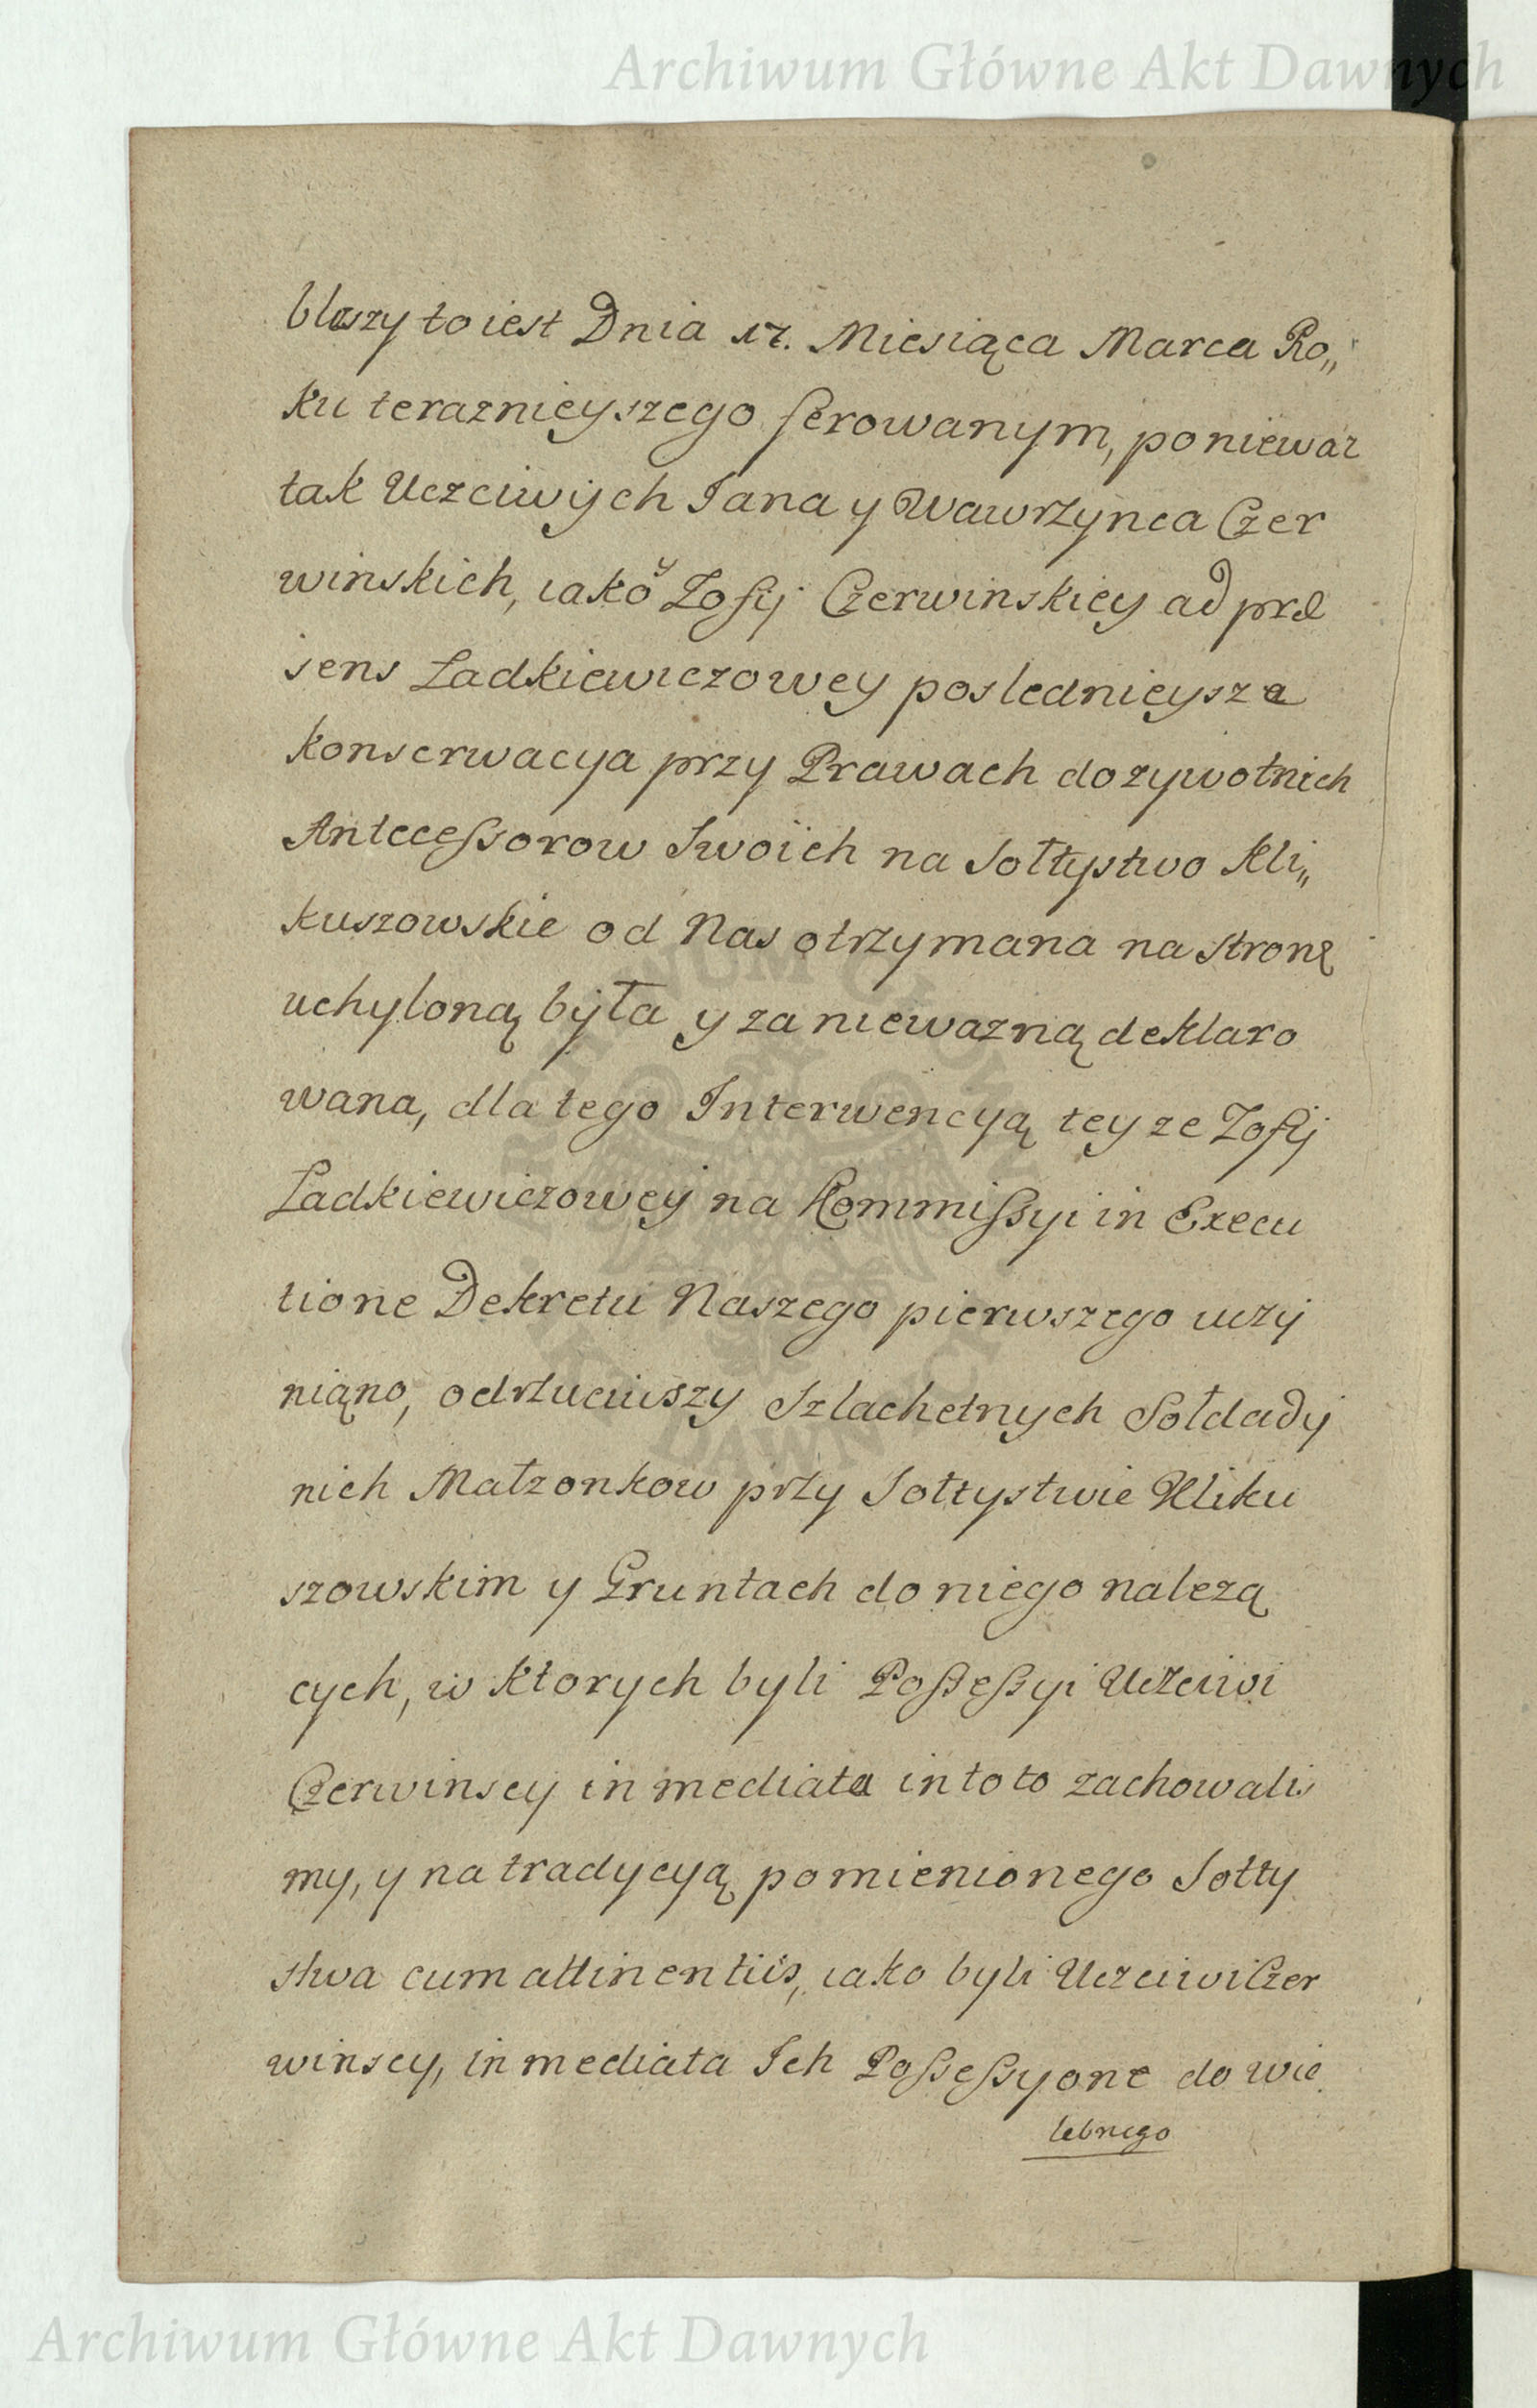 Archiwum Główne Akt Dawnych
blszy to iest Dnia 17. Miesiąca Marca Ro„
ku teraznieyszego ferowanym, poniewaz
tak Uczciwych Jana y Wawrzynca Czer
winskich, iako y Zofij Czerwinskiey ad præ
sens Ładkiewiczowey poslednieysza
konserwacya przy Prawach dozywotnich
Antecessorow Swoich na Sołtystwo Kli„
kuszowskie od Nas otrzymana na stronę
uchyloną była y za niewazną deklaro
wana, dla tego Interwencyą tey ze Zofij
Ładkiewiczowey na Kommissyi in Execu
tione Dekretu Naszego pierwszego uczy
niąno, odrzuciwszy Szlachetnych Sołdady
nich Małzonkow przy Sołtystwie Kliku
szowskim y Gruntach do niego nalezą
cych, w ktorych byli Possessyi Uczciwi
Czerwinscy in mediata in toto zachowalis
my, y na tradycyą pomienionego Sołty
stwa cum attinentiis, iako byli Uczciwi Czer
winscy, in mediata Ich Possessyone do wie
lebnego
ARCHIWUM GŁÓWNE AKT DAWNYCH
Archiwum Główne Akt Dawnych